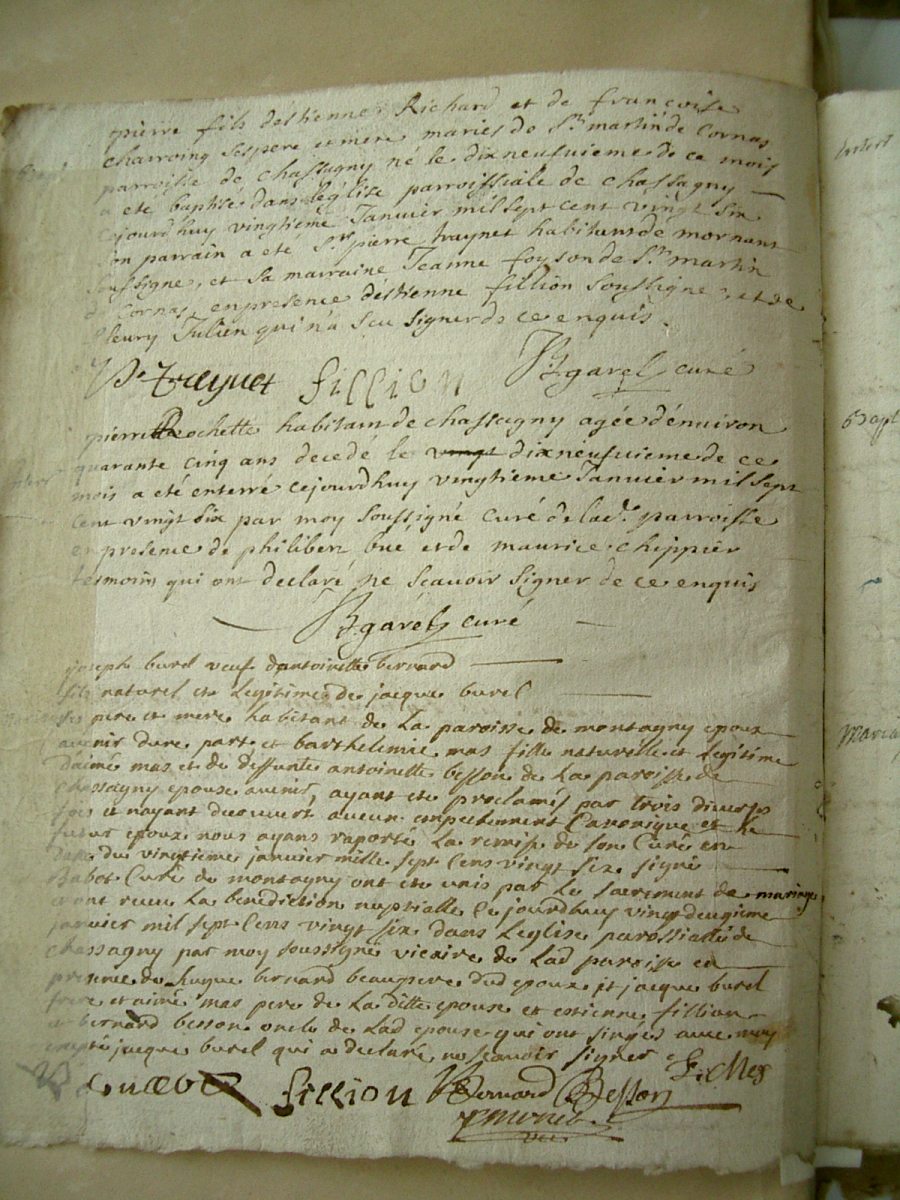 pierre fils déstienne Richard et de francoise
charroing ses pere et mere mariés de St martin de Cornas
parroisse de chassagny né le dixneufuieme de ce mois
a eté baptisé dans léglise parroissiale de chassagny
cejourdhuy vingtieme Januier mil sept cent vingt six
son parrain a été Sr pierre traynet habitant de mornant
soussigné, et sa marraine Jeanne foyson de St martin
de Cornas, en presence déstienne fillion soussigné, et de
fleury Julien qui n'a sceu signer de ce enquis
Bapt
P. traynet fillion garel curé
pierre Rochette habitant de chassagny agée dénuiron
quarante cinq ans decedé le vingt dixneufuieme de ce
mois a eté enterré cejourdhuy vingtieme Januier mil sept
cent vingt six par moy soussigné curé de lad. parroisse
en presence de philibert bué et de maurice chippier
tesmoins qui ont declaré ne sçauoir signer de ce enquis
garel curé
joseph burel veuf dantoinette bernard
fils naturel et legitime de jacque burel
ses pere et mere habitant de la paroisse de montagny epoux
auenir dune part et barthelemie mas fille naturelle et legitime
daimé mas et de deffunte antoinette besson de la paroisse de
chassagny epouse auenir, ayant ete proclamés par trois diuerses
fois et nayant decouuert aucun empechement Canonique et le
futur epoux nous ayans raporté la remise de son Curé en
date du vingtieme januier mille sept cens vingt six signé
Babot Curé de montagny ont ete unis par le sacrement de mariage
et ont receu la benediction nuptialle ce jourdhuy vingt deuxieme
januier mil sept cens vingt six dans leglise paroissialle de
chassagny par moy soussigné vicaire de lad paroisse en
presence de hugue bernard beaupere dud epoux et jacque burel
frere et aimé mas pere de la ditte epouse et estienne fillion
et bernard besson oncle de lad epouse qui ont signés auec moy
excepté jacque burel qui a declaré ne scauoir signer
fillion Bernard Besson
Entert
Bapt
Maria